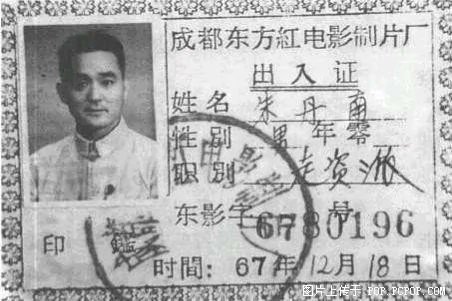 成都东方紅电影制片厂
出入证
姓名 朱丹南
性别 男 年零
职别 走资派
东影字 6780196 号
印鑑
时間：67年12月18日
图片上传于 POP.PCPOP.COM